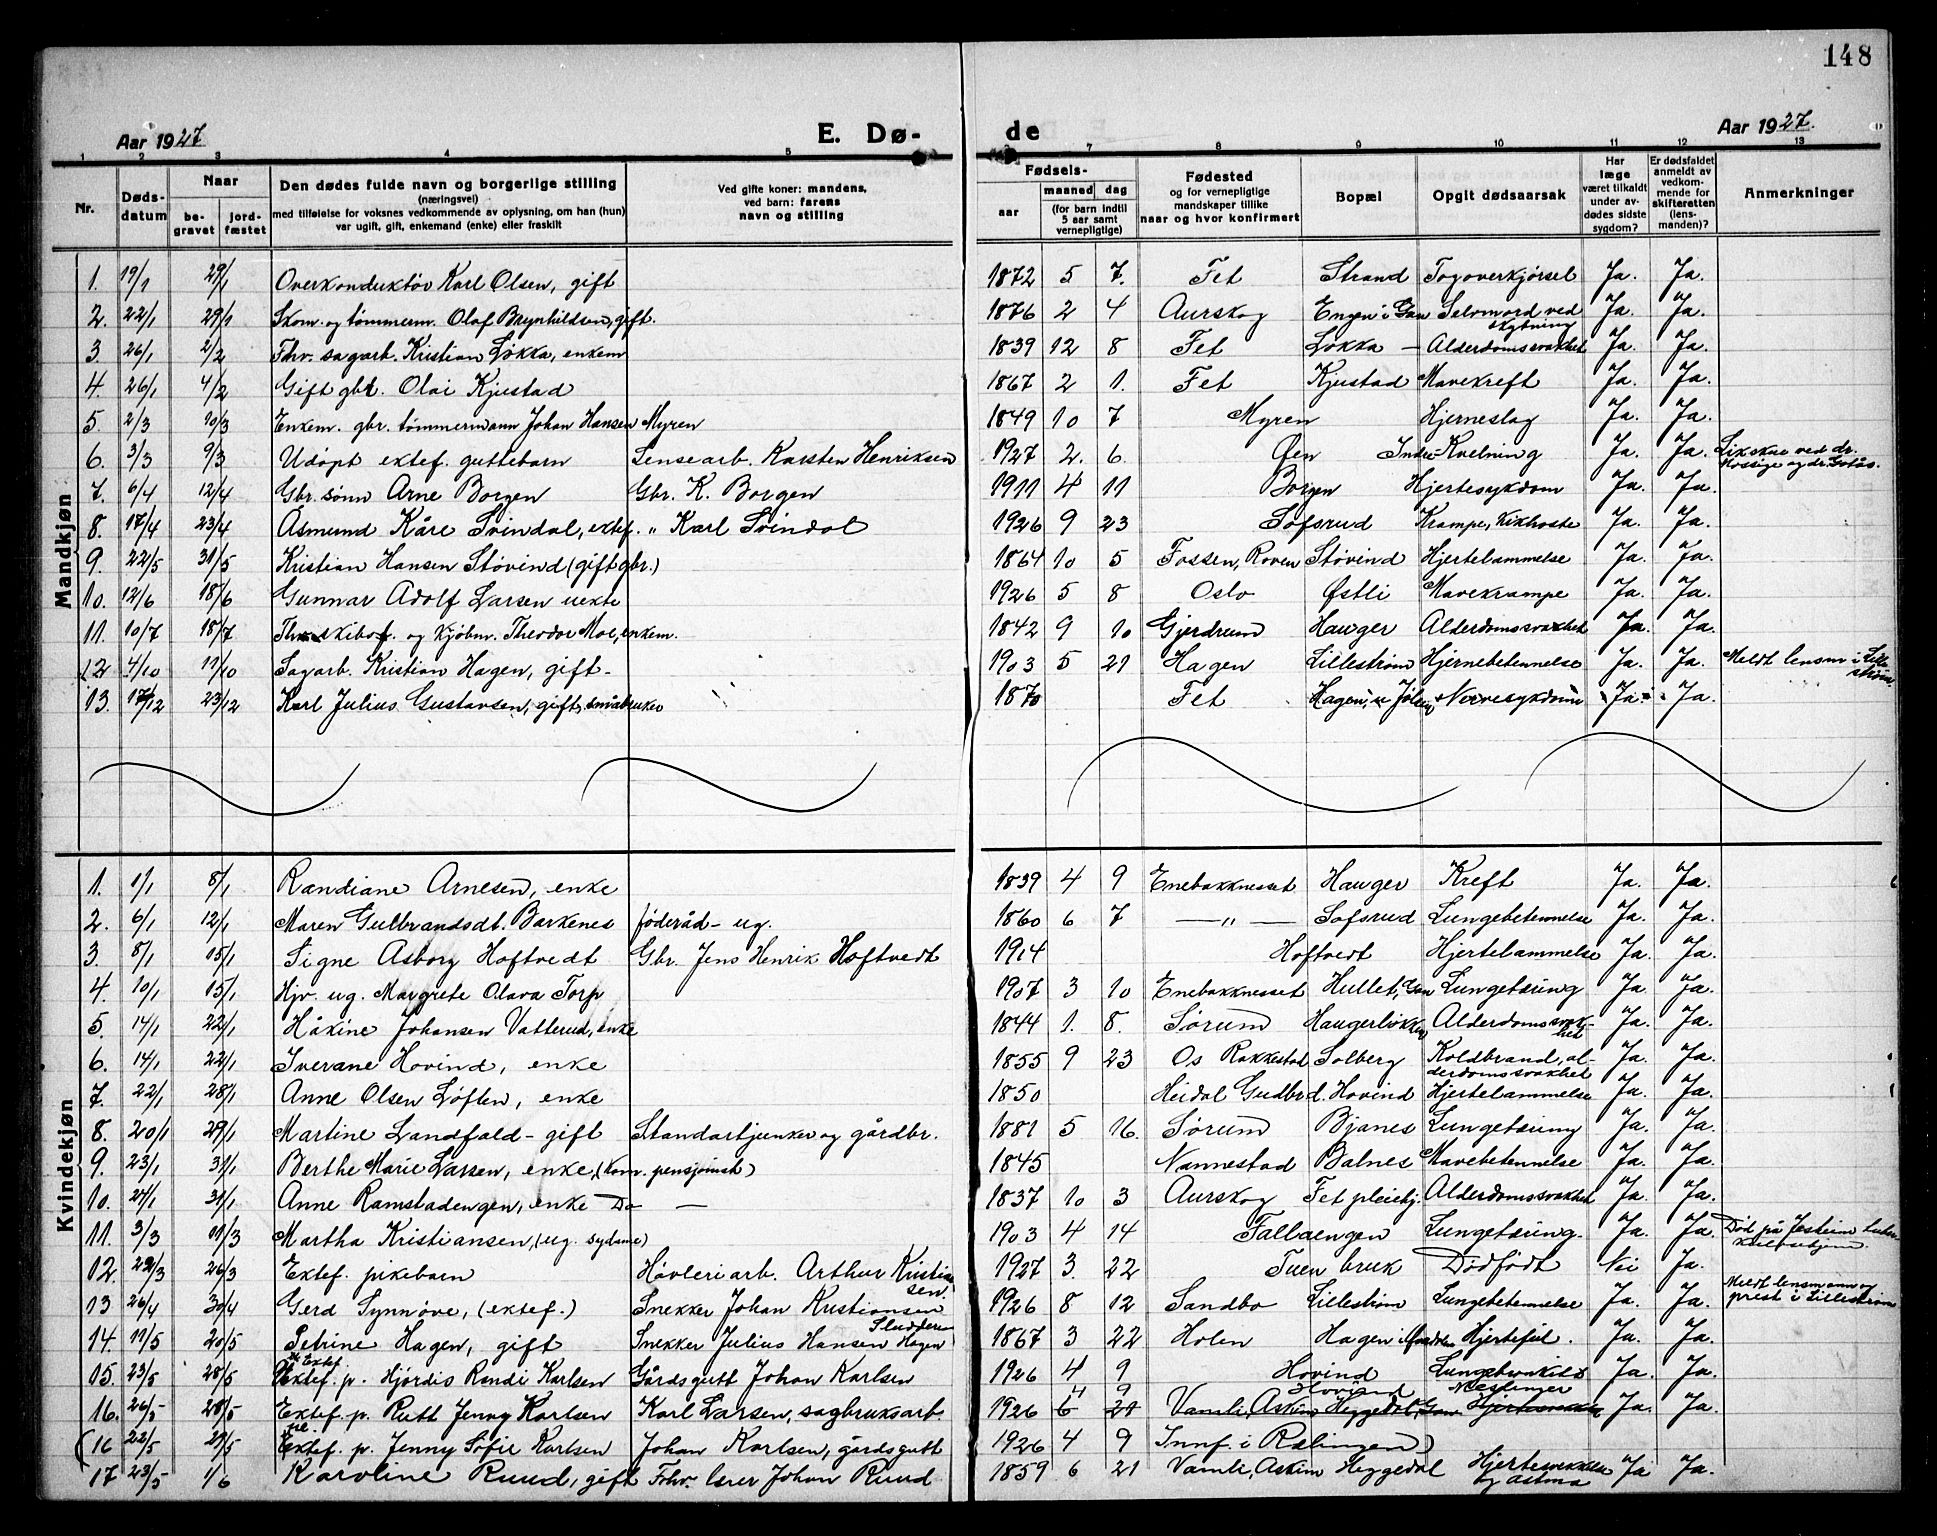 148
Aar 1927
E. Dø-
de
Aar 1927.
1 2 3 4 5 7 8 9 10 11 12 13
Nr.
Døds-
datum
Naar
be-
gravet
jord-
fæstet
Den dødes fulde navn og borgerlige stilling
(næringsvei)
med tilføielse for voksnes vedkommende av oplysning, om han (hun)
var ugift, gift, enkemand (enke) eller fraskilt
Ved gifte koner: mandens,
ved barn: farens
navn og stilling
Fødsels-
aar
maaned
dag
(for barn indtil
5 aar samt
vernepligtige)
Fødested
og for vernepligtige
mandskaper tillike
naar og hvor konfirmert
Bopæl
Opgit dødsaarsak
Har
læge
været tilkaldt
under av-
dødes sidste
sygdom?
Er dødsfaldet
anmeldt av
vedkom-
mende for
skifteretten
(lens-
manden)?
Anmerkninger
Mandkjøn
1. 19/1 29/1 Overkonduktør Karl Olsen, gift 1872 5 7. Fet Strand Togoverkjørsel Ja. Ja.
2. 22/1 29/1 Skom. og tømmerm. Olaf Brynhildsen, gift. 1876 2 4 Aurskog Engen i Gan Selvmord ved skytning Ja. Ja.
3. 26/1 2/2 Fhv. sagarb. Kristian Løkka, enkem 1839 12 8 Fet Løkka – Alderdomssvakhet Ja. Ja.
4. 26/1 4/2 Gift gbr. Olai Kjustad 1867 2 1. Fet Kjustad Mavekreft Ja. Ja.
5. 2/3 10/3 Enkem. gbr. tømmermann Johan Hansen Myren 1849 10 7 Myren Hjerneslag Ja. Ja.
6. 3/3 9/3 Udøpt ektef. guttebarn Lensearb. Karsten Henriksen 1927 2. 6. Øen Indre Kvelning Ja. Ja. Likskue ved dr. Mossige og dr.
7. 6/4 12/4 Gbr. sønn Arne Borgen Gbr. K. Borgen 1911 4 11 Borgen Hjertesykdom Ja. Ja.
8. 17/4 23/4 Åsmund Kåre Svindal, ektef. " Karl Svindal 1926 9 23 Sofsrud Krampe, Kikhoste Ja. Ja.
9. 22/5 31/5 Kristian Hansen Støvind (gift gbr.) 1864 10 5 Fossen, Roven Støvind Hjertelammelse Ja. Ja.
10. 12/6 18/6 Gunnar Adolf Larsen uekte 1926 5 8 Oslo Østli Mavekrampe Ja. Ja.
11. 10/7 18/7 og kjøbm. Theodor Moe, enkem. 1842 9 10 Gjerdrum Hauger Alderdomssvakhet Ja. Ja.
12 4/10 11/10 Sagarb. Kristian Hagen, gift – 1903 5 21 Hagen Lillestrøm Hjernebetennelse Ja. Ja. Meldt lensm i Lille strøm
13. 17/12 23/12 Karl Julius Gustavsen, gift, småbruker 1870 Fet Hagen, Nervesykdom Ja. Ja.
Kvindekjøn
1. 1/1 8/1 Randiane Arnesen, enke 1839 4 9 Enebakknesset Hauger Kreft Ja. Ja.
2. 6/1 12/1 Maren Gulbrandsdt. Barkenes føderåd – ug. 1860 6 7 — " — Sofsrud Lungebetennelse Ja. Ja.
3. 8/1 15/1 Signe Asborg Hoftvedt Gbr. Jens Henrik Hoftvedt 1914 Hoftvedt Hjertelammelse Ja. Ja.
4. 10/1 15/1 Hjv. ug. Margrete Olava Torp 1907 3 10 Enebakknesset Hullet, Gan Lungetæring Ja. Ja.
5. 14/1 22/1 Håkine Johansen Vatterud, enke 1844 1. 8. Sørum Haugerløkken Alderdomssvak-het Ja. Ja.
6. 14/1 22/1 Iverane Hovind, enke 1855 9 23 Os Rakkestad Solberg Koldbrand, al-derdomssvakhet Ja. Ja.
7. 22/1 28/1 Anne Olsen Løften, enke 1850 Heidal Gudbrd. Hovind Hjertelammelse Ja. Ja.
8. 20/1 29/1 Martine Landfald – gift Standartjunker og gårdbr. 1881 5 16. Sørum Bjanes Lungetæring Ja. Ja.
9. 23/1 31/1 Berthe Marie Larsen, enke, (Kom. pensjonist) 1845 Nannestad Balnes Mavebetennelse Ja. Ja.
10. 24/1 31/1 Anne Ramstadengen, enke Do — 1837 10 3 Aurskog Fet pleiehj. Alderdomssvakhet Ja. Ja.
11. 3/3 11/3 Martha Kristiansen, (ug. sydame) 1903 4 14 Fallaengen Lungetæring. Ja. Ja. Død på Jesheim
12. 22/3 26/3 Ektef. pikebarn Høvleriarb. Arthur Kristian sen. 1927 3. 22 Tuen bruk Dødfødt Nei Ja.
13 26/4 30/4 Gerd Synnøve, (ektef.) Snekker Johan Kristiansen 1926 8 12 Sandbo Lillestrøm Lungebetennelse Ja. Ja. Meldt lensmann og prest i Lillestrøm
14. 11/5 20/5 Petrine Hagen, gift Snekker Julius Hansen Hagen 1867 3 22 Holen Hagen i Hjertefeil. Ja. Ja.
15. 23/5 28/5 Ektef. p. Hjørdis Randi Karlsen Gårdsgutt Johan Karlsen 1926 4 9 Hovind Ja. Ja.
16. 26/5 28/5 Ektef. p. Rutt Jenny Karlsen Karl Larsen, sagbruksarb. 1926 4 9 6 21 Vamli, Askim Hovind Heggedal, Gan Meslinger Ja. Ja.
(16 22/5 27/5 Ektef. p. Jenny Sofie Karlsen Johan Karlsen, gårdsgutt 1926 4 9 Innf. i Rælingen)
17 23/5 1/6 Karoline Ruud, gift Fhv. lærer Johan Ruud 1859 6 21 Vamli, Askim Heggedal og astma Ja Ja.